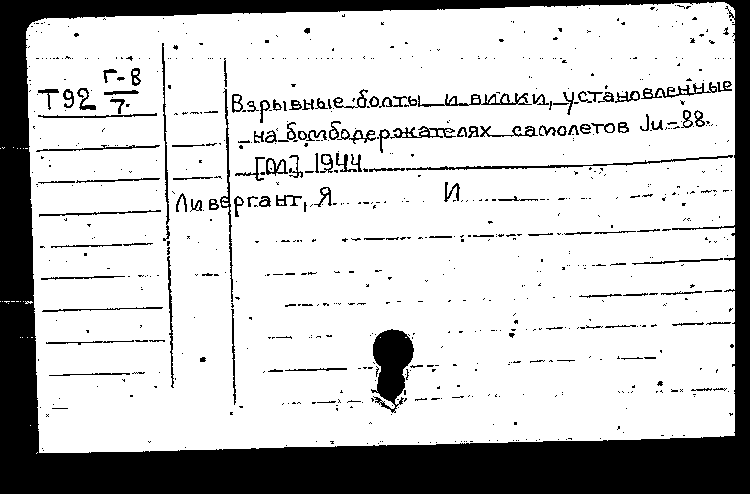 Т92 Г-8/7
Взрывные болты и вилки, установленные
на бомбодержателях самолетов Ju-88.
[М.], 1944
Ливергант, Я И